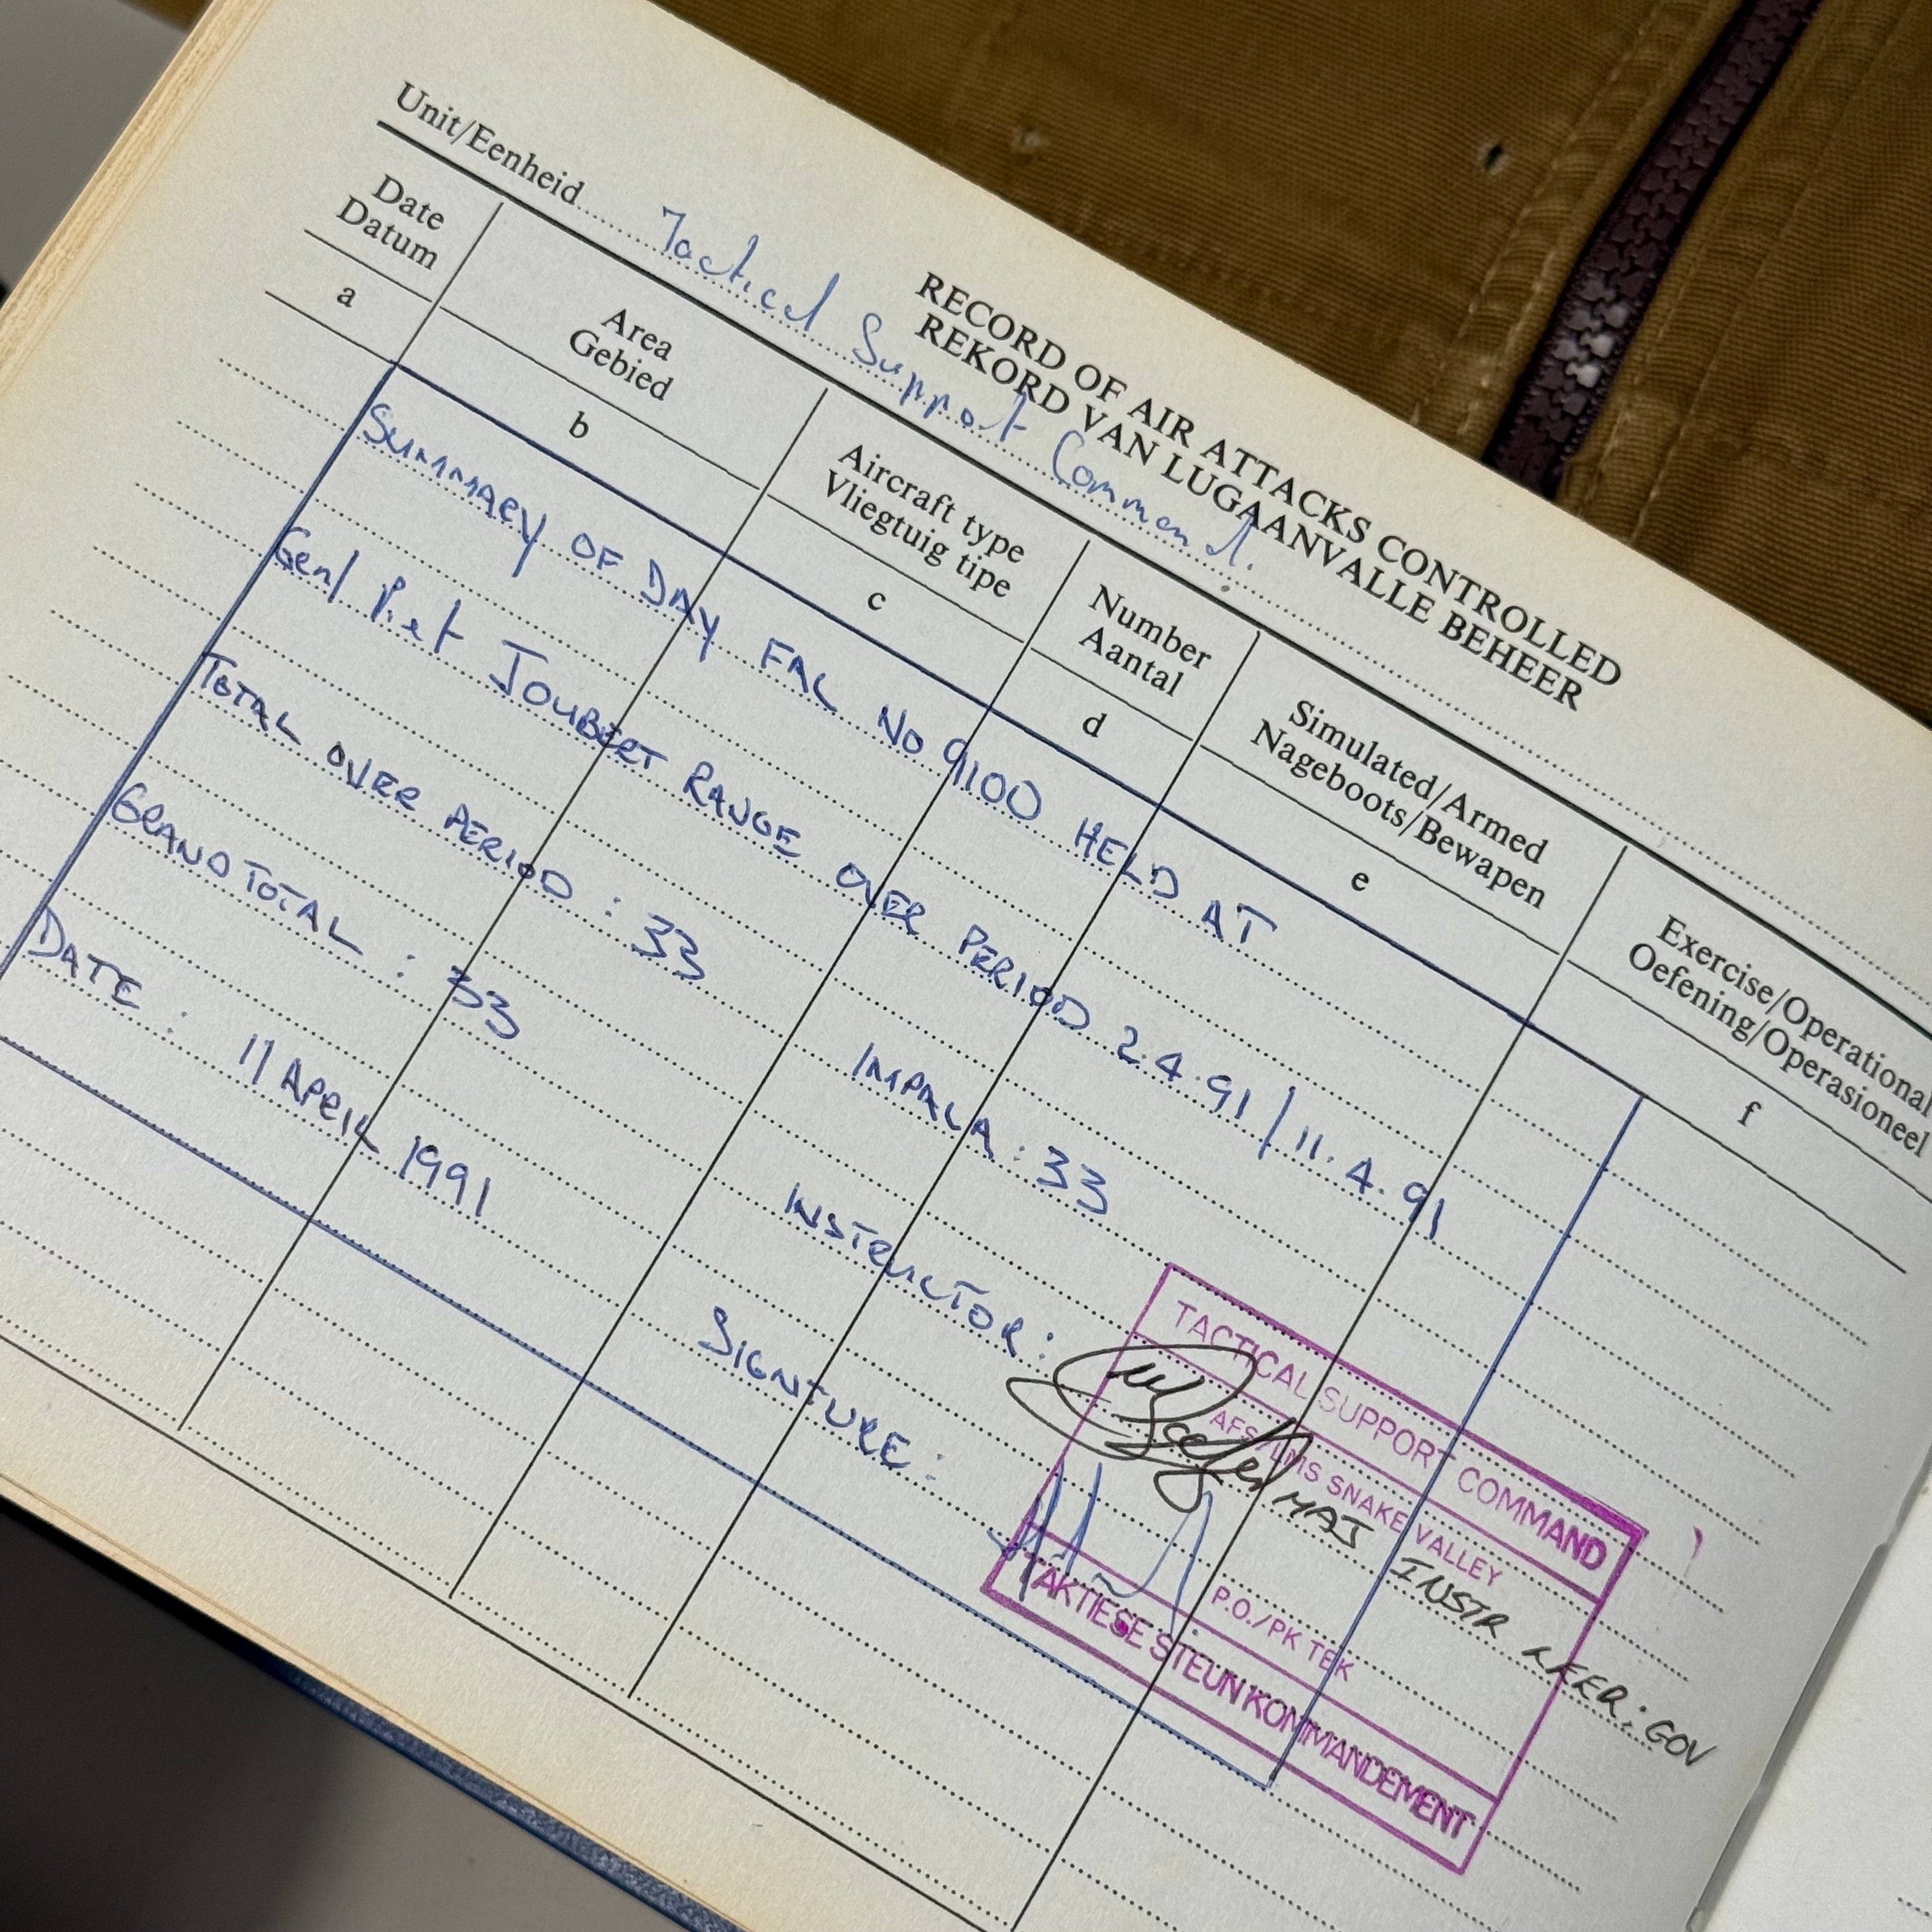 Unit/Eenheid Tactical Support Command.
RECORD OF AIR ATTACKS CONTROLLED
REKORD VAN LUGAANVALLE BEHEER
Date
Datum
a
Area
Gebied
b
Aircraft type
Vliegtuig tipe
c
Number
Aantal
d
Simulated/Armed
Nageboots/Bewapen
e
Exercise/Operational
Oefening/Operasioneel
f
SUMMARY OF DAY FAC NO 9100 HELD AT
Genl Piet JOUBERT RANGE OVER PERIOD 2.4.91/11.4.91
TOTAL OVER PERIOD : 33 IMPALA : 33
GRAND TOTAL : 33 INSTRUCTOR:
MAJ INSTR LEER:GOV
DATE : 11 APRIL 1991 SIGNTURE :
TACTICAL SUPPORT COMMAND
AFS/LMS SNAKE VALLEY
P.O./PK TEK
TAKTIESE STEUNKOMMANDEMENT